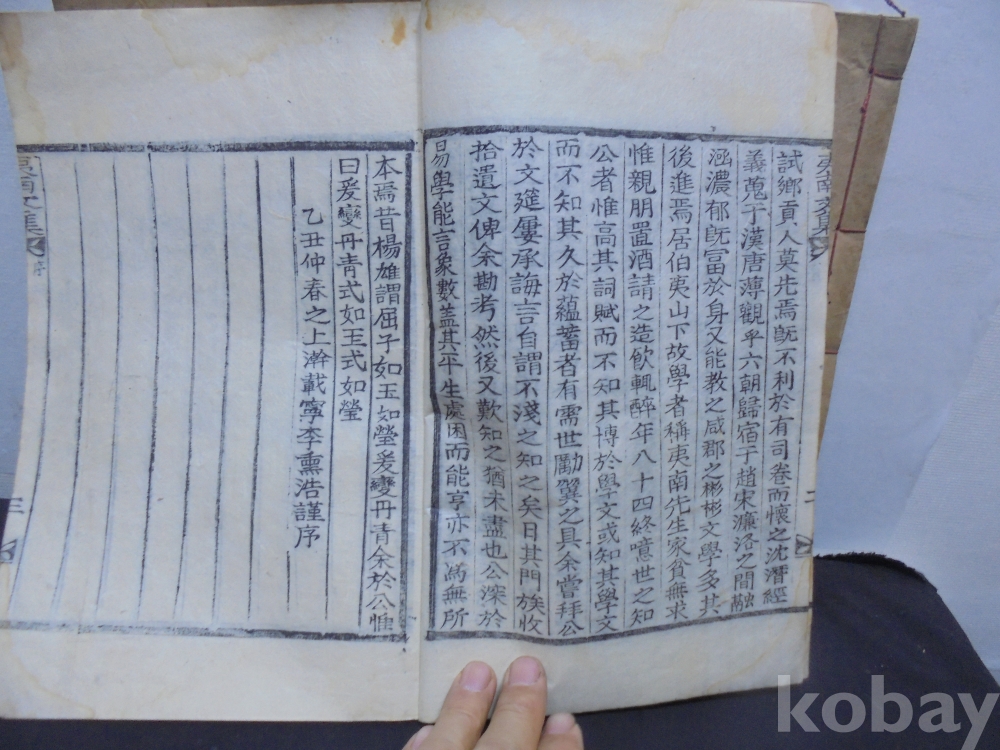 試鄕貢人莫先焉旣不利於有司卷而懷之沈潛經
義蒐于漢唐薄觀乎六朝歸宿于趙宋濂洛之間融
涵濃郁旣富於身又能敎之咸郡之彬彬文學多其
後進焉居伯夷山下故學者稱夷南先生家貧無求
惟親朋置酒請之造飮輒醉年八十四終噫世之知
公者惟高其詞賦而不知其博於學文或知其學文
而不知其久於蘊蓄者有需世勵翼之具余嘗拜公
於文筵屢承誨言自謂不淺之知之矣日其門族收
拾遺文俾余勘考然後又歎知之猶未盡也公深於
易學能言象數盖其平生處困而能亨亦不爲無所
二
本焉昔楊雄謂屈子如玉如瑩爰變丹靑余於公惟
曰爰變丹靑式如玉式如瑩
乙丑仲春之上澣載寧李熏浩謹序
夷南文集
序
三
kobay